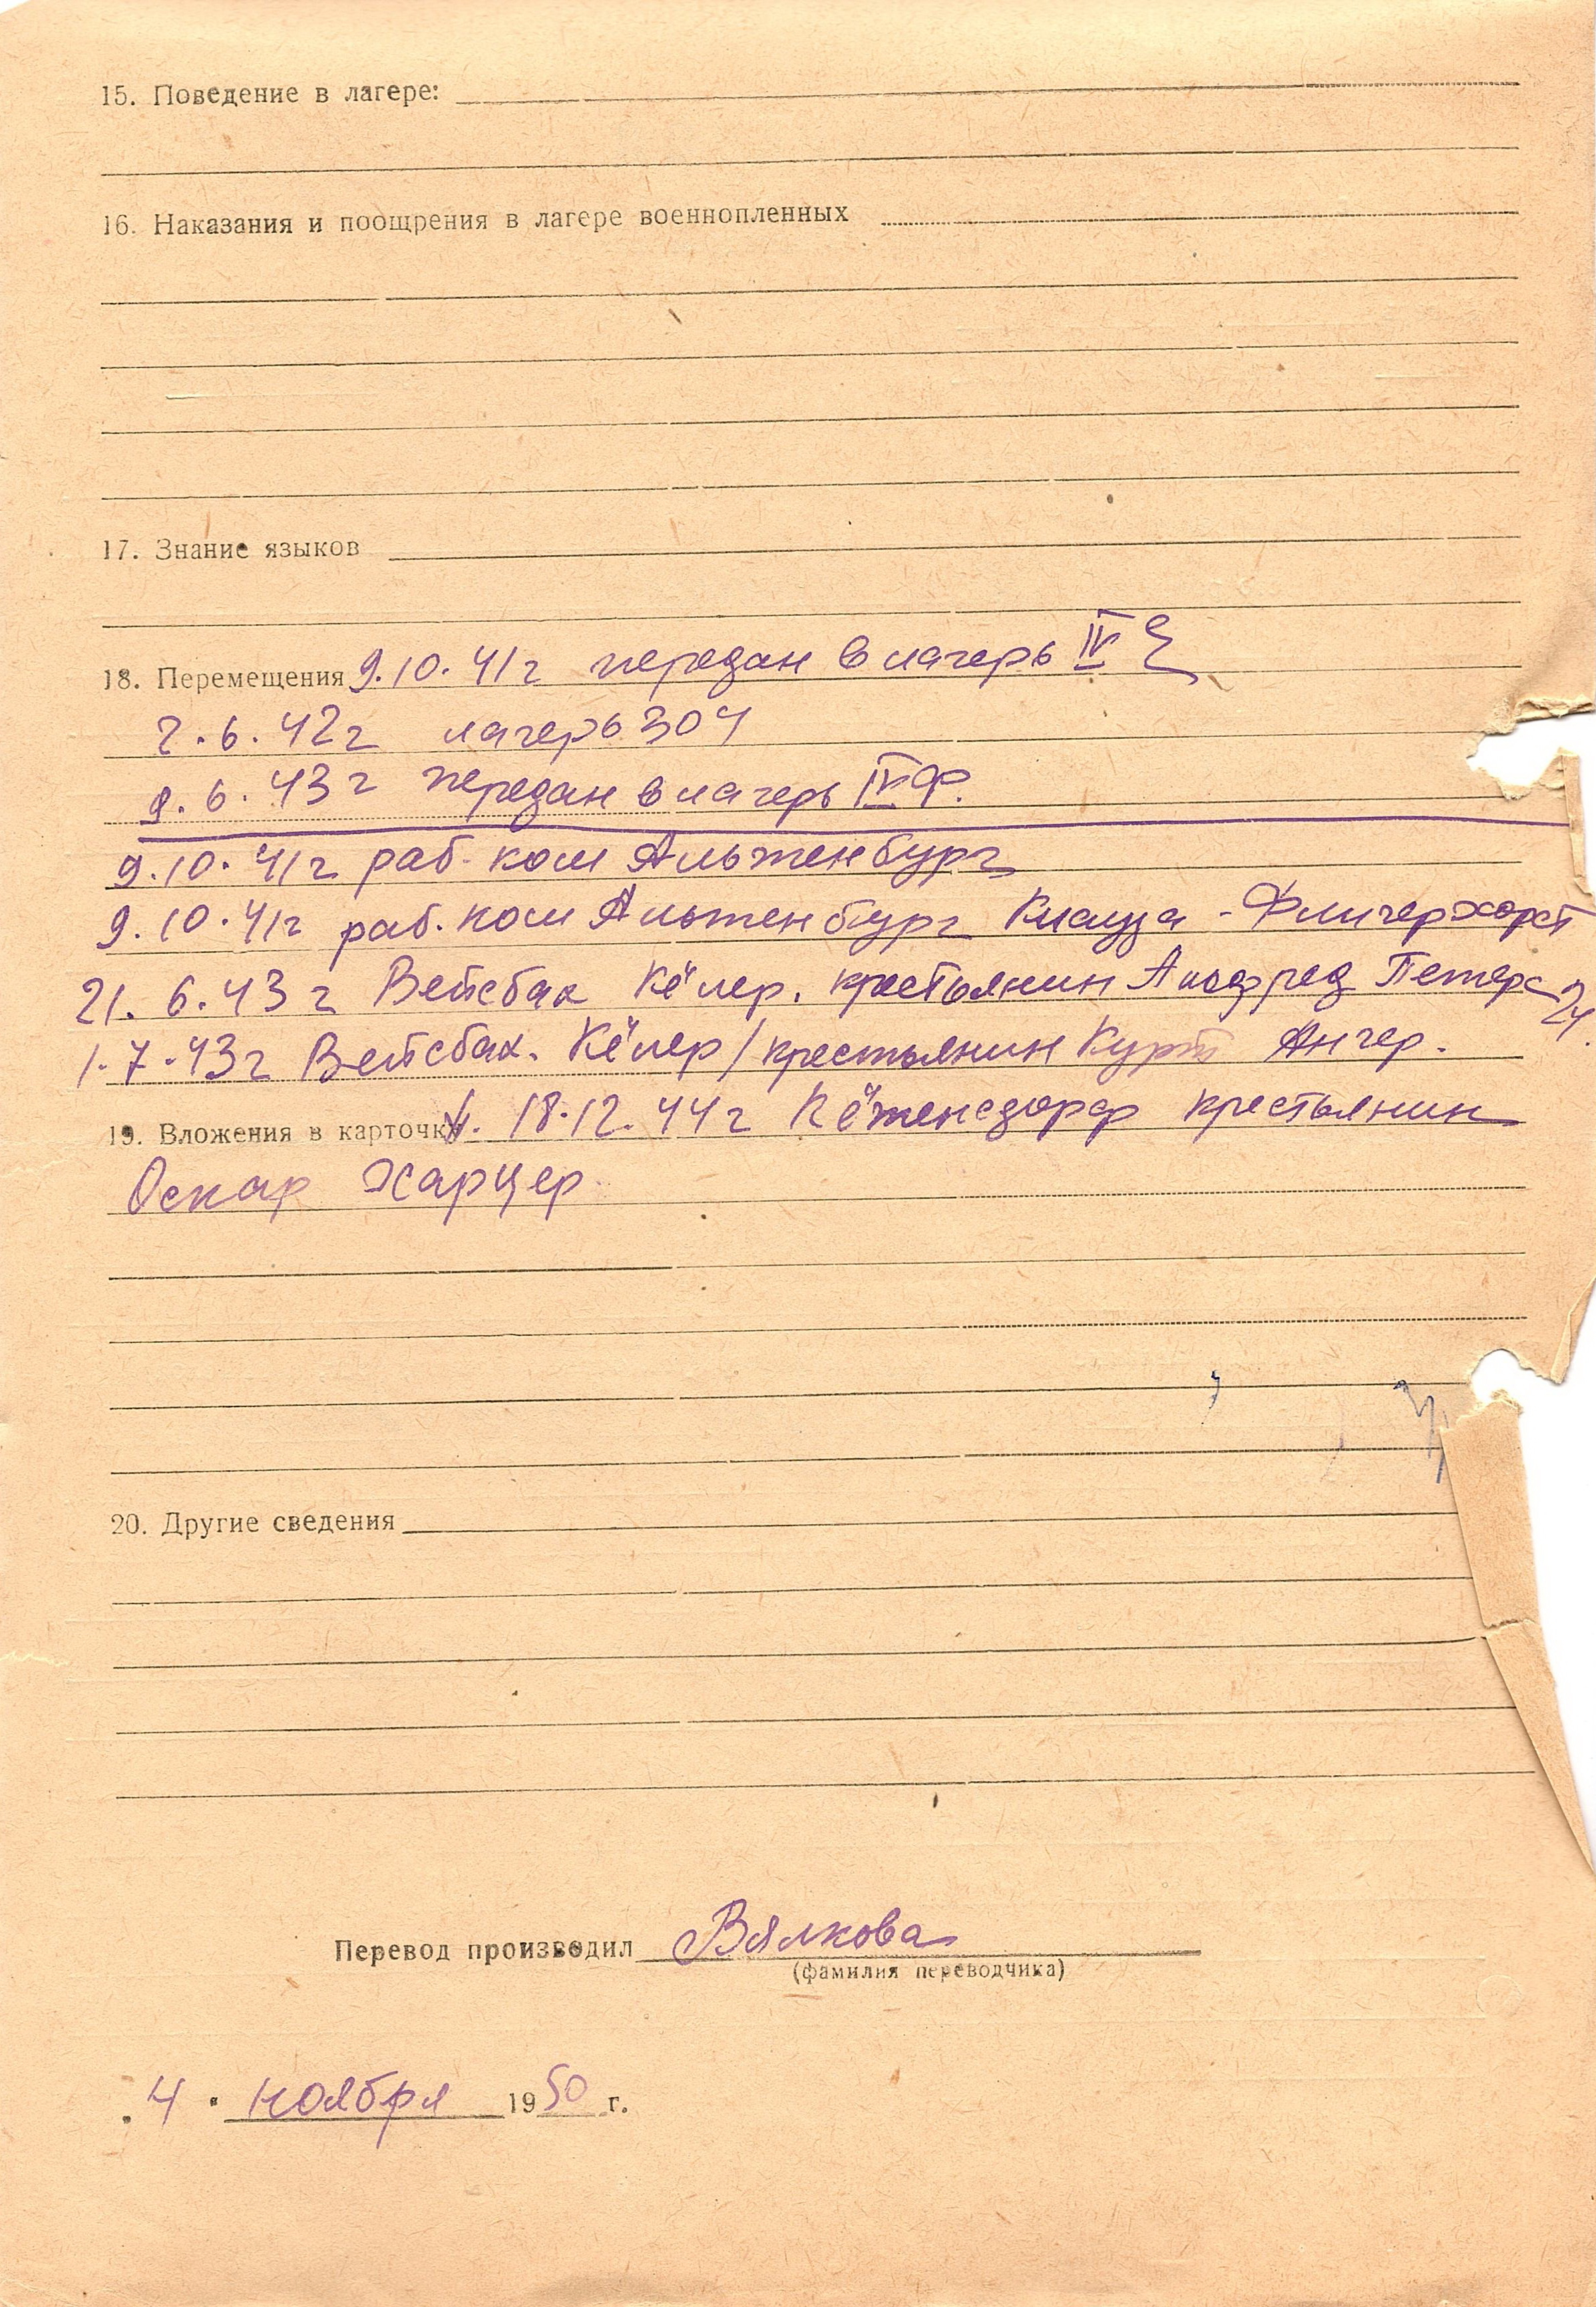 15. Поведение в лагере:
16. Наказания и поощрения в лагере военнопленных
17. Знание языков
18. Перемещения 9.10.41г передан в лагерь IV Е
2.6.42г лагерь 304
9.6.43г передан в лагерь IVФ.
9.10.41г раб. ком Альтенбург
9.10.41г раб. ком Альтенбург Клауза - Флигерхорст
21.6.43г Вейсбах Кёлер. крестьянин Альфред Петерс
1.7.43г Вейсбах. Кёлер/крестьянин Курт Ангер.
19. Вложения в карточку. 18.12.44г Кётенсдорф крестьянин
Оскар Харцер.
20. Другие сведения
Перевод производил Вялкова
(фамилия переводчика)
"4" ноября 1950 г.